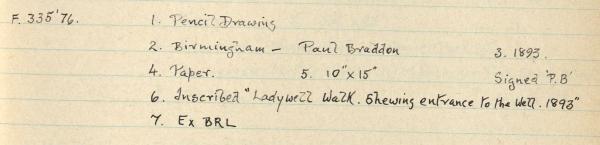 F. 335'76. 1. Pencil Drawing
2. Birmingham – Paul Braddon 3. 1893.
4. Paper. 5. 10"x15" Signed 'P.B'
6. Inscribed "Ladywell Walk. Shewing entrance to the Well. 1893"
7. Ex BRL